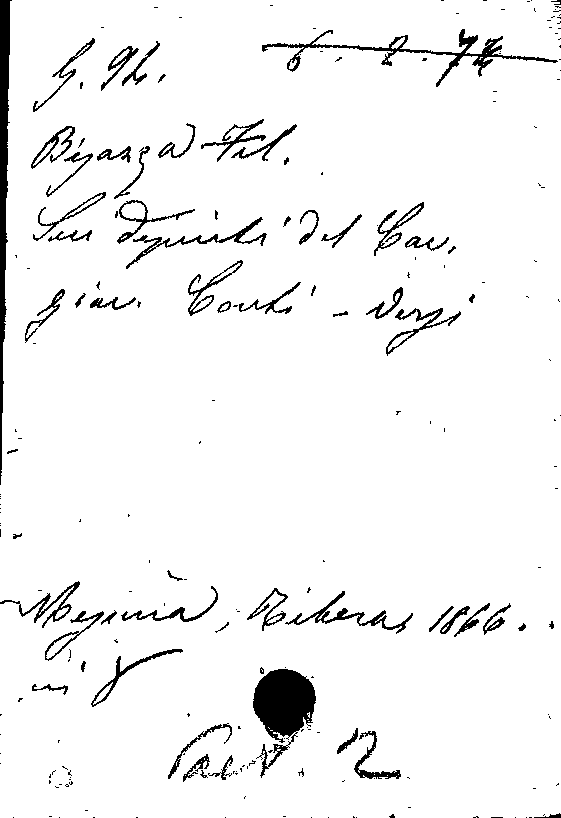 G. 92. 6. 2. 72
Bisazza Fil.
Sui dipinti del Cav.
Giov. Conti - Versi
Messina, Ribera, 1866.
in 8
Poet. 2